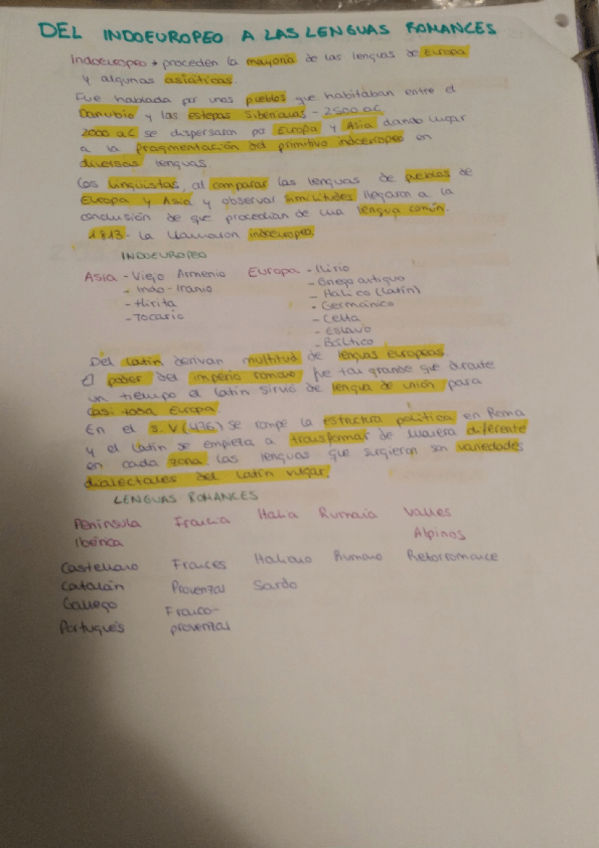 DEL INDOEUROPEO A LAS LENGUAS ROMANCES
Indoeuropeo → proceden la mayoria de las lenguas de Europa
y algunas asiáticas.
Fue hablada por unos pueblos que habitaban entre el
Danubio y las estepas Siberianas - 2500 a.C.
2000 a.C se dispersaron por Europa y Asia dando lugar
a la fragmentación del primitivo indoeuropeo en
diversas lenguas.
Los lingüistas, al comparar las lenguas de pueblos de
Europa y Asia y observar similitudes llegaron a la
conclusión de que procedian de una lengua común.
1813 - La llamaron indoeuropeo.
INDOEUROPEO
Asia - Viejo Armenio Europa - Ilirio
- Indo-Iranio - Griego antiguo
- Hitita - Itálico (Latín)
- Tocario - Germánico
- Celta
- Eslavo
- Báltico
Del latín derivan multitud de lenguas europeas.
El poder del imperio romano fue tan grande que durante
un tiempo el latín sirvió de lengua de unión para
casi toda Europa.
En el s. V (476) se rompe la estructura política en Roma
y el latín se empieza a transformar de manera diferente
en cada zona. Las lenguas que surgieron son variedades
dialectales del latín vulgar.
LENGUAS ROMANCES
Península Ibérica Francia Italia Rumania Valles Alpinos
Castellano Frances Italiano Rumano Retorromance
Catalán Provenzal Sardo
Gallego Franco-
Portugués provenzal